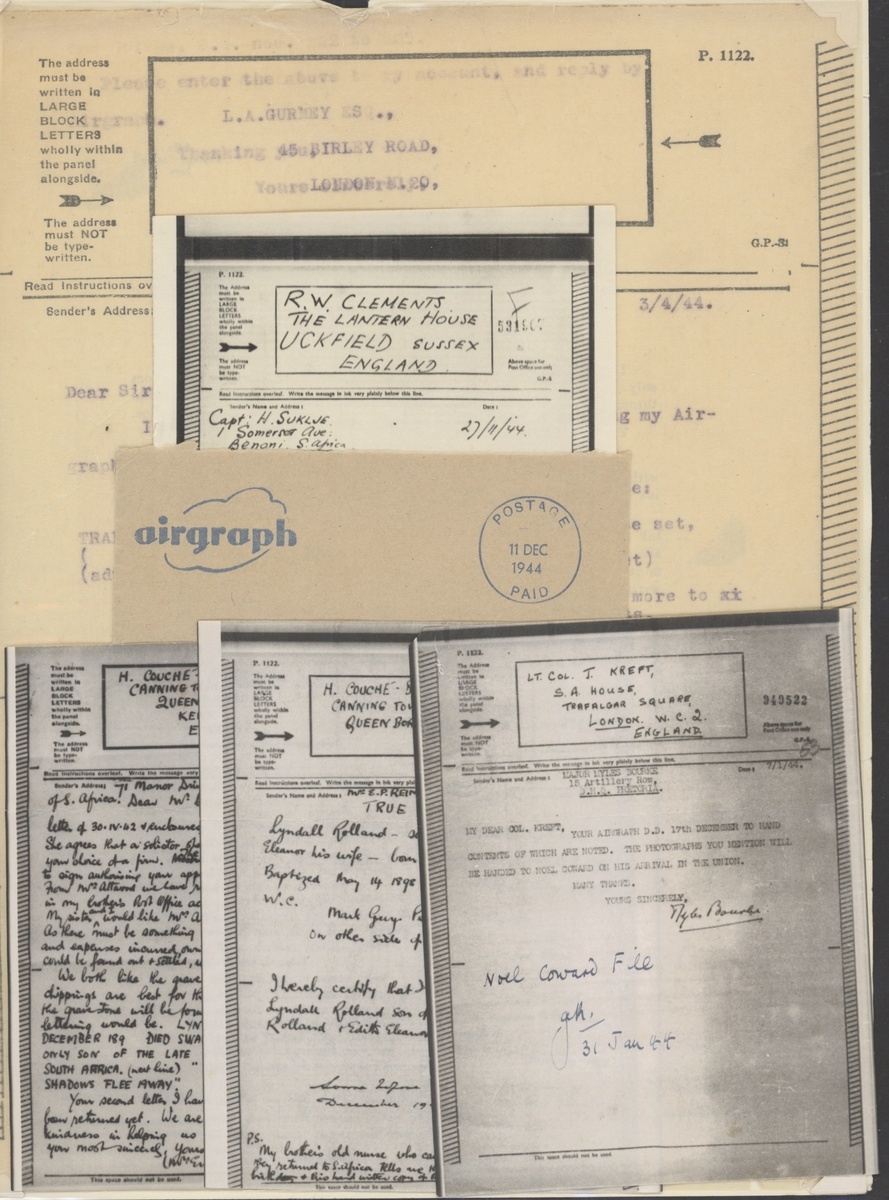 The address
must be
written in
LARGE
BLOCK
LETTERS
wholly within
the panel
alongside.
The address
must NOT
be type-
written.
Please enter the above to my account, and reply by
L.A.GURNEY ESQ.,
45 BIRLEY ROAD,
LONDON N.20,
P. 1122.
Read Instructions ov
Sender's Address:
3/4/44.
Dear Sir
g my Air-
graph
e:
TRA
e set,
(ad
t)
more to
P. 1122.
The Address
must be
written in
LARGE
BLOCK
LETTERS
wholly within
the panel
alongside.
The address
must NOT
be type-
written.
R.W. CLEMENTS
THE LANTERN HOUSE
UCKFIELD SUSSEX
ENGLAND
Above space for
Post Office use only
G.P.-S
Read Instructions overleaf. Write the message in ink very plainly below this line.
Sender's Name and Address:
Date:
Capt: H. SUKLJE.
1 Somerset Ave:
Benoni. S. Africa
27/11/44.
airgraph
POSTAGE
11 DEC
1944
PAID
The address
must be
written in
LARGE
BLOCK
LETTERS
wholly within
the panel
alongside.
The address
must NOT
be type-
written.
H. COUCHÉ
CANNING T
QUEEN
KE
E
Read Instructions overleaf. Write the message very
Sender's Address:
71 Manor Dri
of S. Africa. Dear Mr
letter of 30-IV-42 & enclosure
She agrees that a solicitor
your choice of a firm.
to sign authorising your app
From Mrs Attwood we have
in my brother's Post Office ac
My sister and I would like Mrs A
As there must be something
and expenses incurred,
could be found out & settled,
We both like the grave
chippings are best for th
the grave stone will be
lettering would be. LYN
DECEMBER 189 DIED SWA
ONLY SON OF THE LATE
SOUTH AFRICA. (next line) "
SHADOWS FLEE AWAY"
Your second letter I hav
been returned yet. We are
kindness in helping us
your most sincerely, Yours
This space should not be used.
P. 1122.
The address
must be
written in
LARGE
BLOCK
LETTERS
wholly within
the panel
alongside.
The address
must NOT
be type-
written.
H. COUCHÉ - B
CANNING TOW
QUEEN BOR
Read Instructions overleaf. Write the message in ink very pl
Sender's Name and Address:
TRUE
Lyndall Rolland -
Eleanor his wife -
Baptized May 14 1898
W.C.
Mark Guy
On other side of
I hereby certify that
Lyndall Rolland son of
Rolland & Edith Eleanor
December 19
P.S.
My brother's old nurse who
This space should not be used.
P. 1122.
The address
must be
written in
LARGE
BLOCK
LETTERS
wholly within
the panel
alongside.
The address
must NOT
be type-
written.
LT. COL. J. KREFT,
S.A. HOUSE,
TRAFALGAR SQUARE,
LONDON. W.C.2.
ENGLAND
949522
Above space for
Post Office use only
Read Instructions overleaf. Write the message in ink very plainly below this line.
Sender's Name and Address:
MAJOR MYLES BOURKE
15 Artillery Row,
D.H.Q. PRETORIA.
Date:
7/1/44.
MY DEAR COL. KREFT,
YOUR AIRGRAPH D.D. 17th DECEMBER TO HAND
CONTENTS OF WHICH ARE NOTED. THE PHOTOGRAPHS YOU MENTION WILL
BE HANDED TO NOEL COWARD ON HIS ARRIVAL IN THE UNION.
MANY THANKS.
YOURS SINCERELY,
Myles Bourke
Noel Coward File
31 Jan 44
This space should not be used.